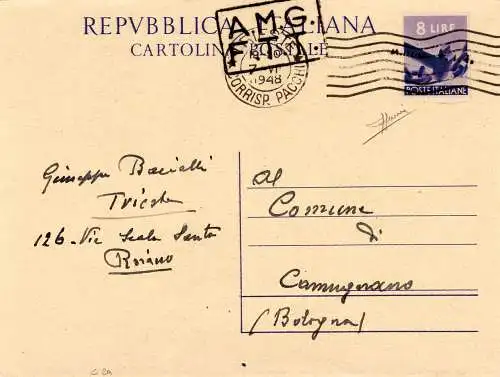 REPVBBLICA ITALIANA
CARTOLINA POSTALE
A.M.G.
F.T.T.
1948
CORRISP. PACCHI
8 LIRE
POSTE ITALIANE
Giuseppe
Trieste
126 - Via Scala Santa
Roiano
Al
Comune
di
Camugnano
(Bologna)